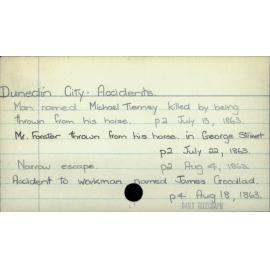 Dunedin City - Accidents.
Man named Michael Tierney killed by being
thrown from his horse. p2 July 13, 1863.
Mr. Forster thrown from his horse in George Street
p2 July 22, 1863.
Narrow escape. p2 Aug 4, 1863.
Accident to workman named James Goodlad.
p4 Aug 18, 1863.
DAILY TELEGRAPH